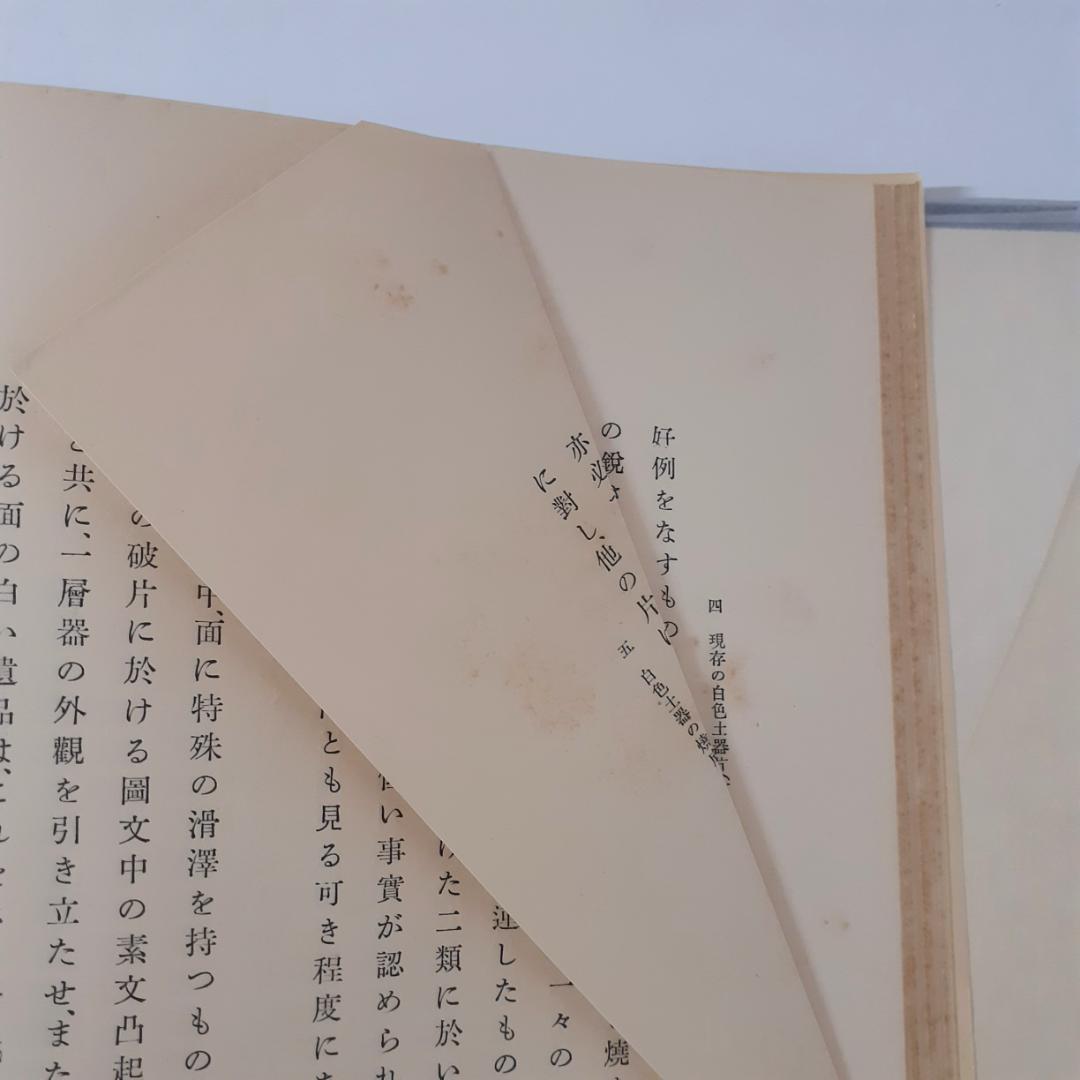 四 現存の白色土器片
好例をなすも
の鋭
亦必
に對し、他の片
五 白色土器の燒
燒
一々の
連したもの
た二類に於い
い事實が認められ
とも見る可き程度に
中、面に特殊の滑澤を持つもの
の破片に於ける圖文中の素文凸起
と共に、一層器の外觀を引き立たせ、また
於ける面の白い遺品は、これを